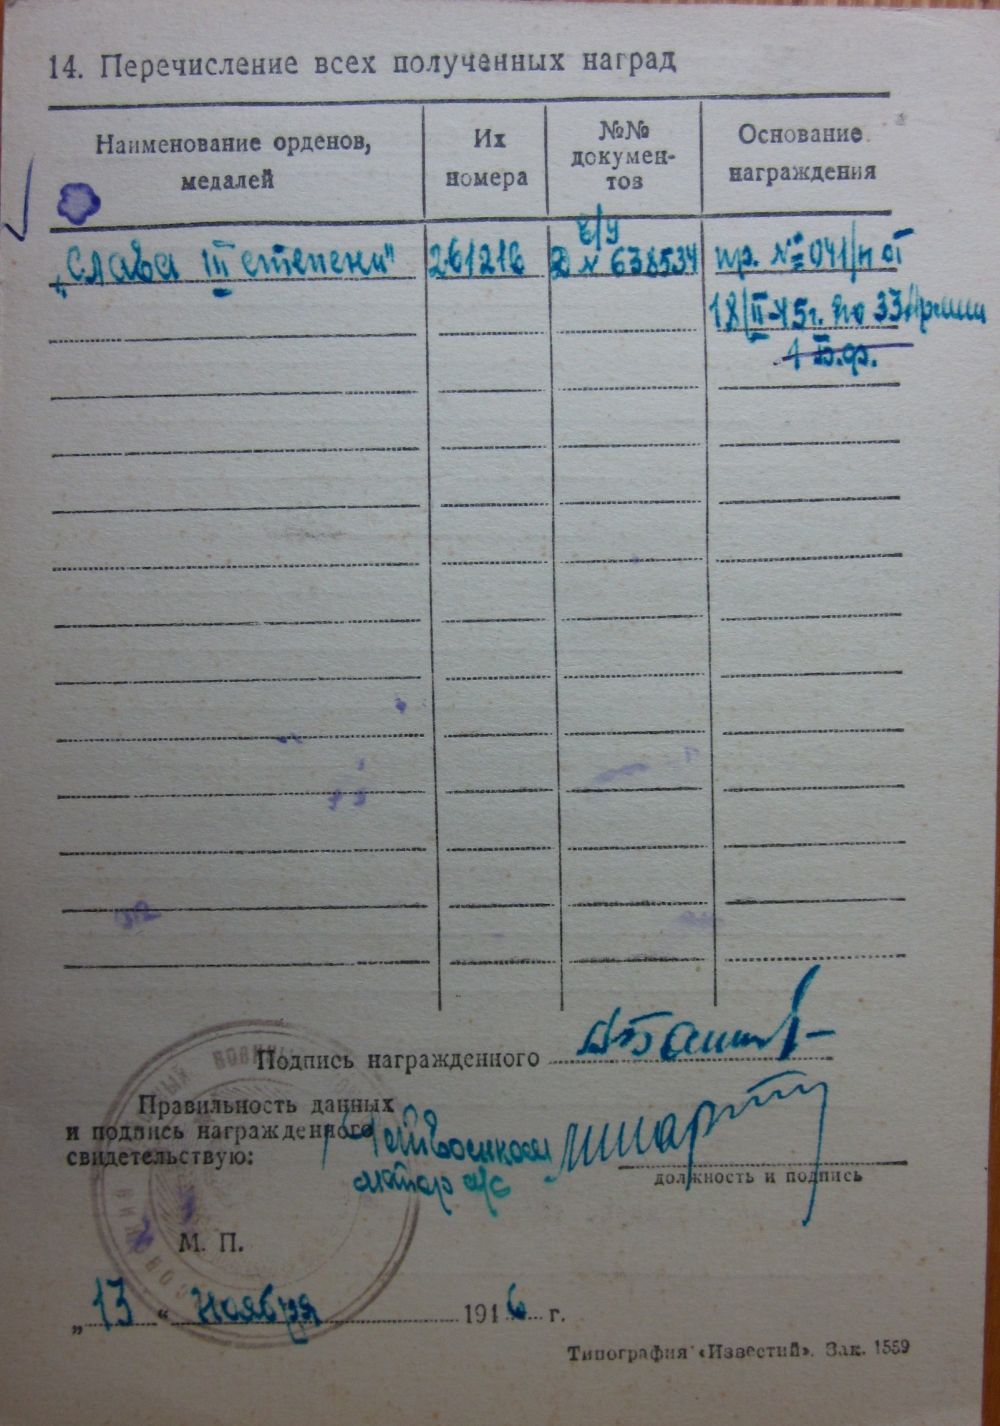 14. Перечисление всех полученных наград
Наименование орденов, медалей
Их номера
№№ докумен-тов
Основание награждения
„Слава III степени"
261216
б/у
Д № 638534
пр. № 041/н от
18/II-45г. по 33 Армии
1 Б.ф.
Подпись награжденного
Правильность данных
и подпись награжденного
свидетельствую:
майор а/с
должность и подпись
М. П.
„13“ Ноября 1946 г.
Типография «Известий». Зак. 1559